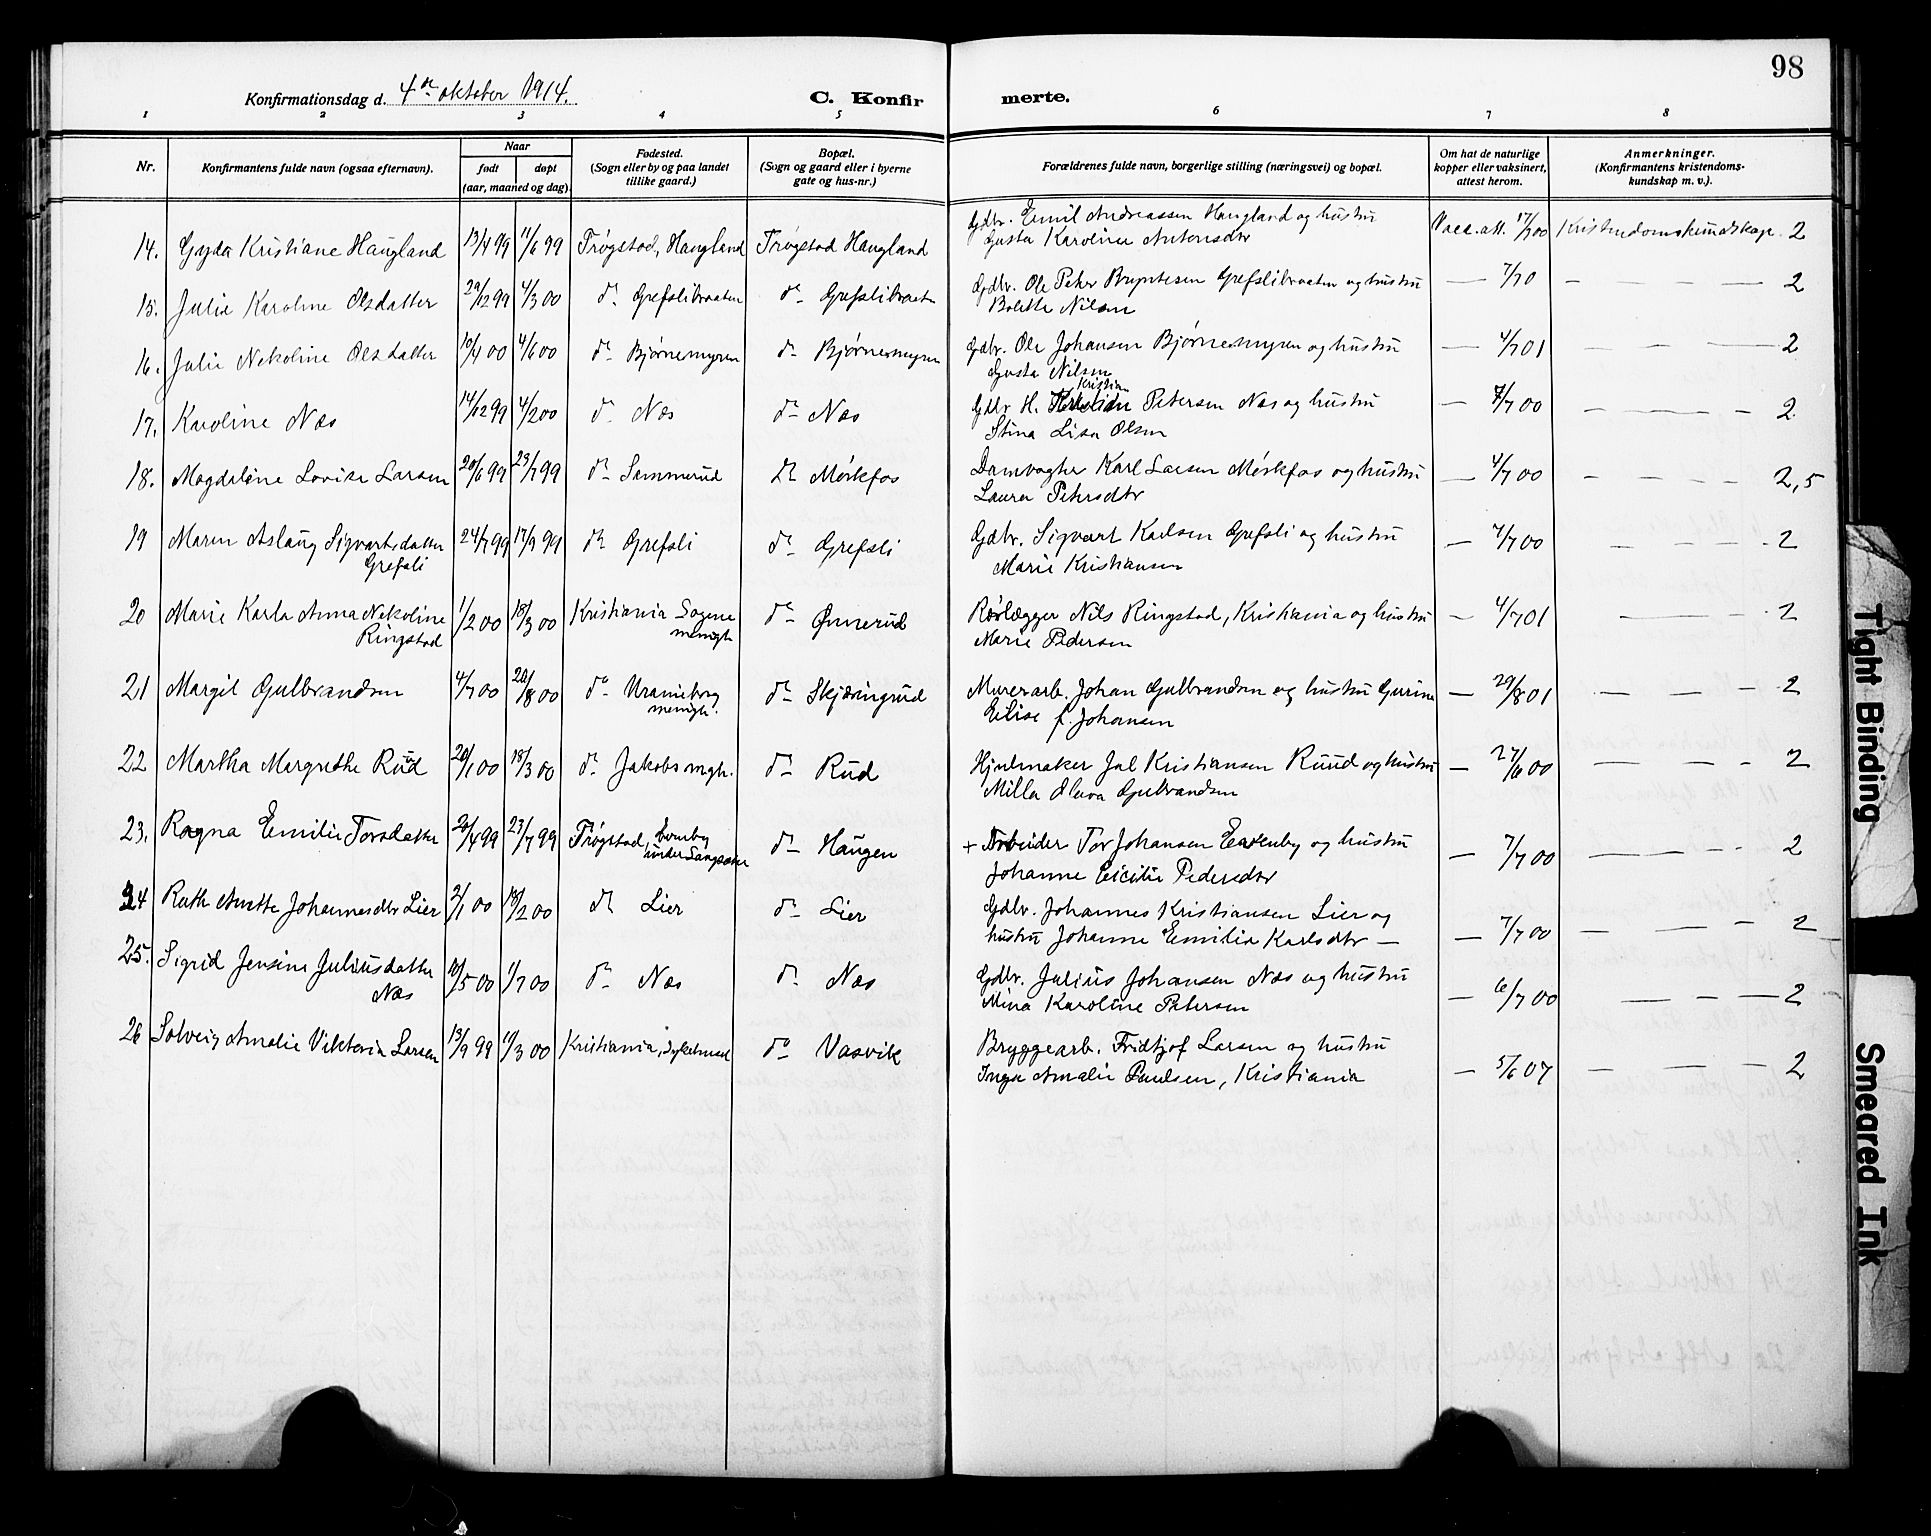 98
Konfirmationsdag d. 4de oktober 1914.
C. Konfirmerte.
1 2 3 4 5 6 7 8
Nr.
Konfirmantens fulde navn (ogsaa efternavn).
Naar
født
døpt
(aar, maaned og dag).
Fødested.
(Sogn eller by og paa landet
tillike gaard.)
Bopæl.
(Sogn og gaard eller i byerne
gate og hus-nr.)
Forældrenes fulde navn, borgerlige stilling (næringsvei) og bopæl.
Om hat de naturlige
kopper eller vaksinert,
attest herom.
Anmerkninger.
(Konfirmantens kristendoms-
kundskap m. v.).
14. Gyda Kristiane Haugland 13/4 99 11/6 99 Trøgstad, Haugland Trøgstad Haugland Gdbr. Emil Andreassen Haugland og hustru Vacc. att. 17/7 00 Kristendomskundskap 2
Gusta Karoline Antonsdtr
15. Julie Karoline Olsdatter 29/12 99 4/3 00 do - Grefslibraaten do - Grefslibraaten Gdbr. Ole Peter Bryntesen Grefslibraaten og hustru — 7/10 — 2
Bolette Nilsen
16. Julie Nekoline Olsdatter 10/4 00 4/6 00 do - Bjørnemyren do - Bjørnemyren Gdbr. Ole Johansen Bjørnemyren og hustru — 4/7 01 — 2
Gusta Nilsen
17. Karoline Næs 14/12 99 4/2 00 do Næs do - Næs Gdbr H. Kristian Petersen Næs og hustru — 7/7 00 — 2
Stina Lisa Olsen
18. Magdalene Lovise Larsen 20/6 99 23/7 99 do - Sammerud do Mørkfos Damvogter Karl Larsen Mørkfos og hustru — 4/7 00 — 2,5
Laura Petersdtr
19 Maren Aslaug Sigvartsdatter 24/7 99 17/9 99 do Grefsli do - Grefsli Gdbr. Sigvart Karlsen Grefsli og hustru — 4/7 00 — 2
Grefsli Marie Kristiansen
20 Marie Karla Anna Nekoline 1/2 00 18/3 00 Kristiania Sagene do - Ønnerud Rørlægger Nils Ringstad, Kristiania og hustru — 4/7 01 — 2
Ringstad menigh Marie Pedersen
21 Margit Gulbrandsen 4/7 00 20/8 00 do Uranieborg do - Skjæringrud Murerarb. Johan Gulbrandsen og hustru Gurine — 29/8 01 — 2
menigh. Elise f. Johansen
22 Martha Margrethe Rud 20/1 00 18/3 00 do - Jakobs mgh. do - Rud Hjulmaker Jul Kristiansen Ruud og hustru — 27/6 00 — 2
Milla Olava Gulbrandsen
23. Ragna Emilie Torsdatter 20/4 99 23/7 99 Trøgstad, do - Haugen + Arbeider Tor Johansen og hustru — 7/7 00 — 2
under Langsæter Johanne Cicilie Pedersdtr
24 Ruth Anette Johannesdtr Lier 2/1 00 18/2 00 do Lier do - Lier Gdbr. Johannes Kristiansen Lier og — 7/7 00 — 2
hustru Johanne Emilie Karlsdtr —
25. Sigrid Jensine Juliusdatter 10/5 00 1/7 00 do - Næs do - Næs Gdbr. Julius Johansen Næs og hustru — 6/7 00 — 2
Næs Mina Karoline Petersen
26 Solveig Amalie Viktoria Larsen 13/9 99 11/3 00 Kristiania, do - Vasvik Bryggearb. Fridtjof Larsen og hustru — 5/6 07 — 2
Inga Amalie Paulsen, Kristiania
Tight Binding
Smeared Ink